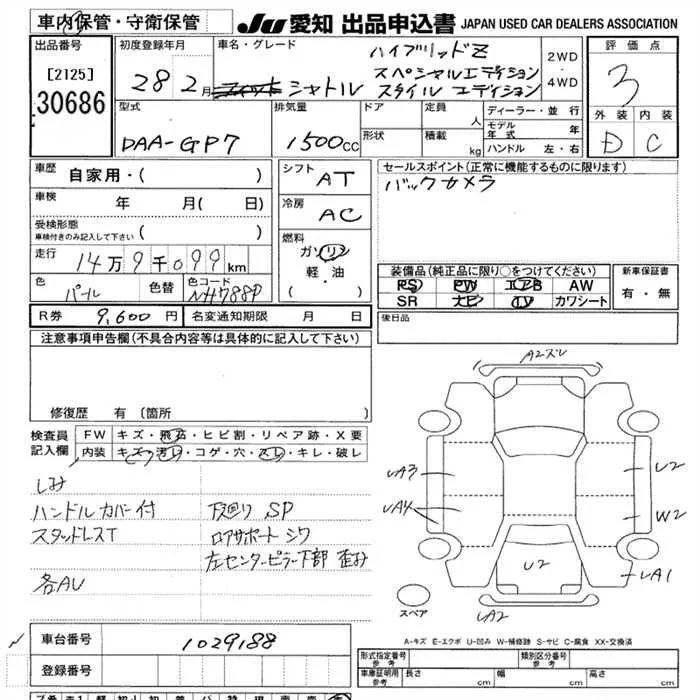 車内保管・守衛保管
JU 愛知 出品申込書 JAPAN USED CAR DEALERS ASSOCIATION
出品番号
[2125]
30686
初度登録年月
28 2月
車名・グレード
ハイブリッドZ
シャトル スペシャルエディション
スタイル エディション
2WD
・
4WD
評価点
3
外装 内装
D C
型式
DAA-GP7
排気量
1500cc
ドア
形状
定員 人
積載 kg
ディーラー・並行
モデル年式 年
ハンドル 左・右
車歴
自家用・( )
車検 年 月( 日)
受検形態
車検付きのみ記入して下さい ( )
走行
14万9千099km
色
パール
色替
色コード
NH788P
シフト
AT
冷房
AC
燃料
ガソリン
軽・油
・( )
セールスポイント(正常に機能するものに限ります)
バックカメラ
装備品(純正品に限り○をつけてください)
PS PW エアB AW
SR ナビ TV カワシート
新車保証書
有・無
R券 9,600円 名変通知期限 月 日
後日品
注意事項申告欄(不具合内容等は具体的に記入して下さい)
修復歴 有(箇所 )
検査員記入欄
FW キズ・飛石・ヒビ割・リペア跡・X要
内装 キズ・汚レ・コゲ・穴・スレ・キレ・破レ
しみ
ハンドルカバー付 下廻り SP
スタッドレスT ロアサポート シワ
左センターピラー下部 歪み
各AU
A2ズレ
A3
A4
U2
W2
U2
A1
A2
スペア
A-キズ E-エクボ U-凹み W-補修跡 S-サビ C-腐食 XX-交換済
車台番号 1029188
登録番号
形式指定番号 参考
類別区分番号 参考
車庫証明用 参考 長さ cm 幅 cm 高さ cm